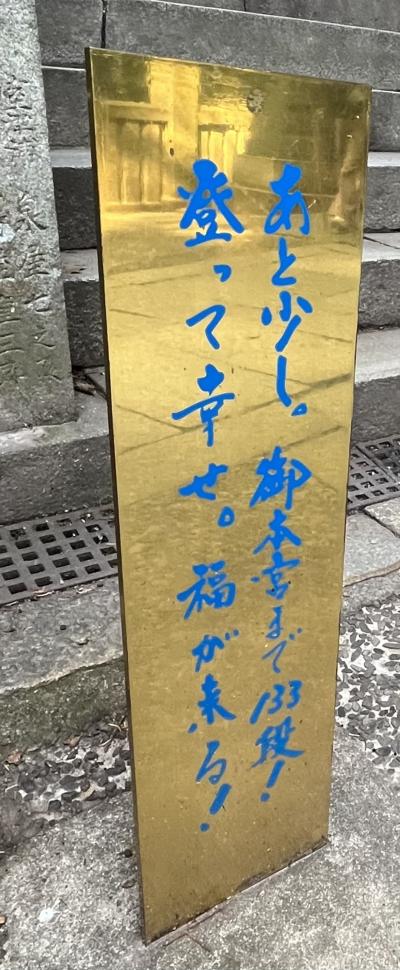 あと少し。御本宮まで133段！
登って幸せ。福が来る！